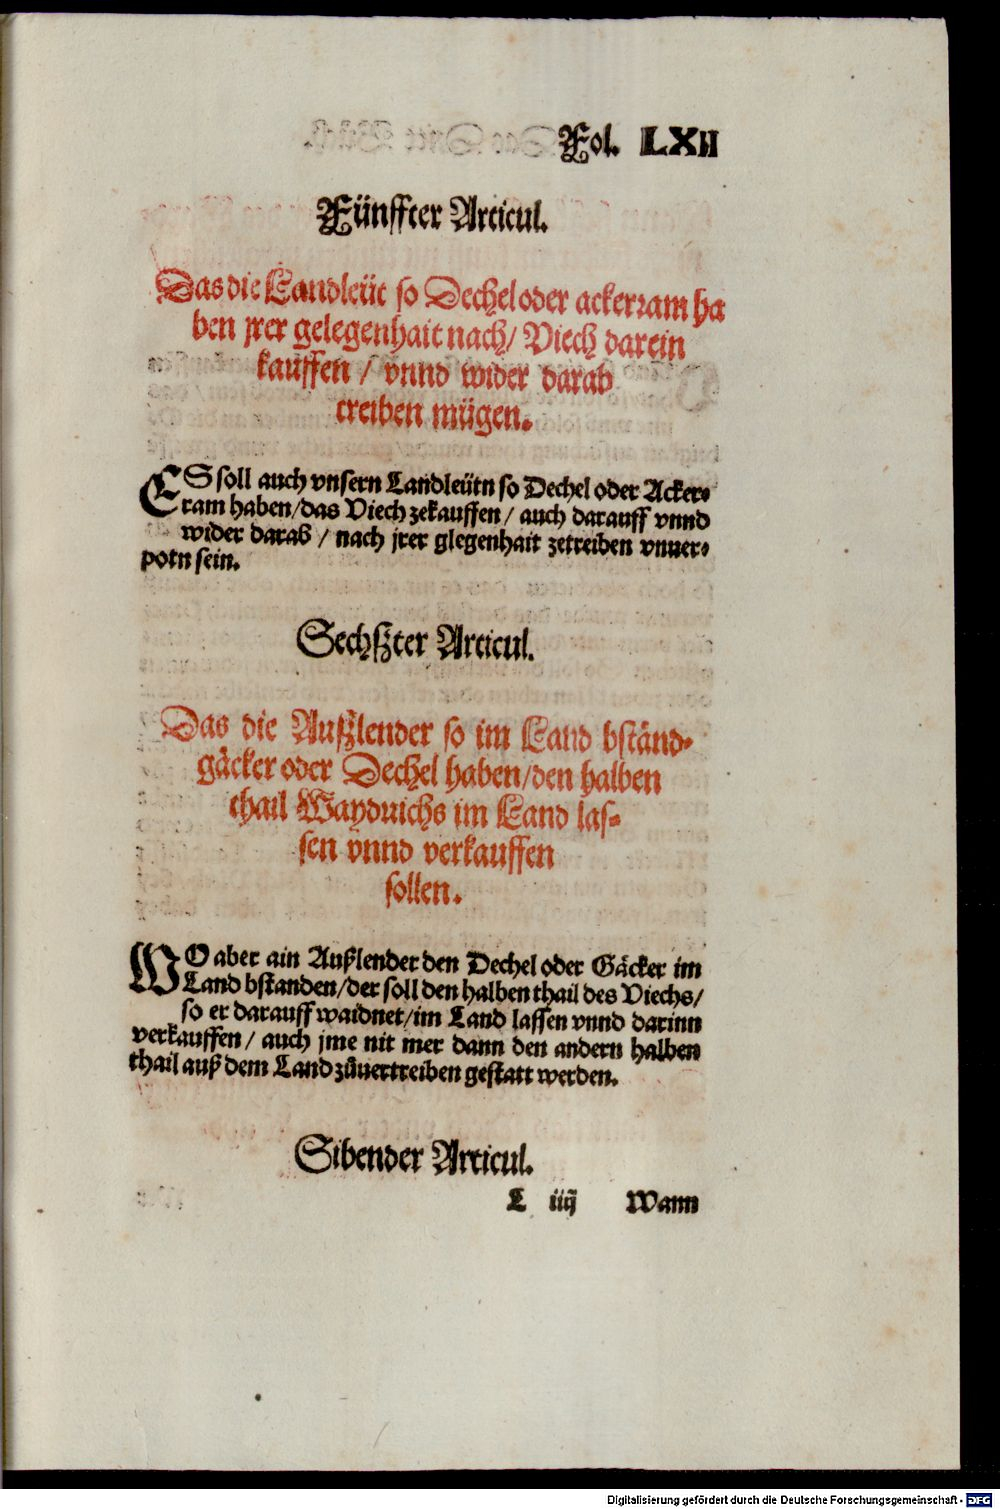 Fol. LXII
Fünffter Articul.
Das die Landleüt so Dechel oder ackerram ha
ben jrer gelegenhait nach/ Viech darein
kauffen / vnnd wider darab
treiben mügen.
ES soll auch vnsern Landleütn so Dechel oder Acker-
ram haben/das Viech zekauffen / auch darauff vnnd
wider darab / nach jrer glegenhait zetreiben vnuer-
potn sein.
Sechßter Articul.
Das die Außlender so im Land bständ-
gäcker oder Dechel haben/den halben
thail Wayduichs im Land las-
sen vnnd verkauffen
sollen.
WO aber ain Außlender den Dechel oder Gäcker im
Land bstanden/der soll den halben thail des Viechs/
so er darauff waidnet/im Land lassen vnnd darinn
verkauffen / auch jme nit mer dann den andern halben
thail auß dem Land zůuertreiben gestatt werden.
Sibender Articul.
L iiij Wann
Digitalisierung gefördert durch die Deutsche Forschungsgemeinschaft - DFG